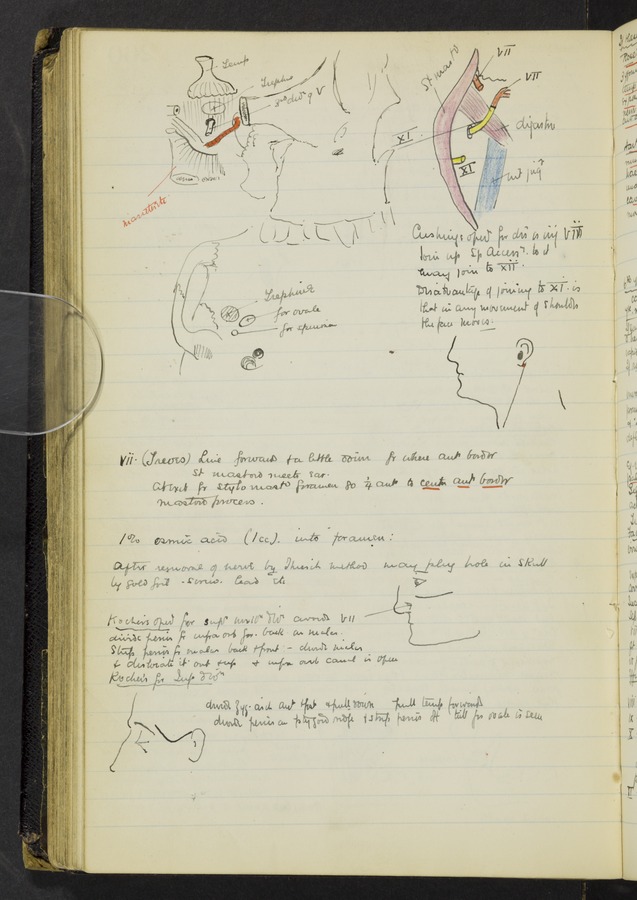 Temp
Trephine
3rd div of V
masseter
St mast
VII
VII
XI
digastric
XI
int jug
Cushing's oper for div or inj VII
Join up Sp Access. to it
may join to XII.
Disadvantage of joining to XI. is
that in any movement of Shoulder
the face moves.
Trephine
for ovale
for spinosa
VII. (Treves) Line forward + a little down fr where ant border
St mastoid meets ear.
fr Stylo mast foramen so 1/4 ant to centre ant border
mastoid process.
1% osmic acid (1cc). into foramen:
After removal of nerve by Thiersch method may plug hole in Skull
by gold foil - screw. lead etc
Kocher's oper for supr maxy div avoids VII
divide perios fr infra orb for. back on malar.
Strip perios fr malar back + front - divide malar
+ dislocate it out + up + infra orb canal is open
Kocher's for Inf div
divide zyg. arch ant + post + pull down pull temp forwards
divide perios on pterygoid ridge + strip perios till for ovale is seen